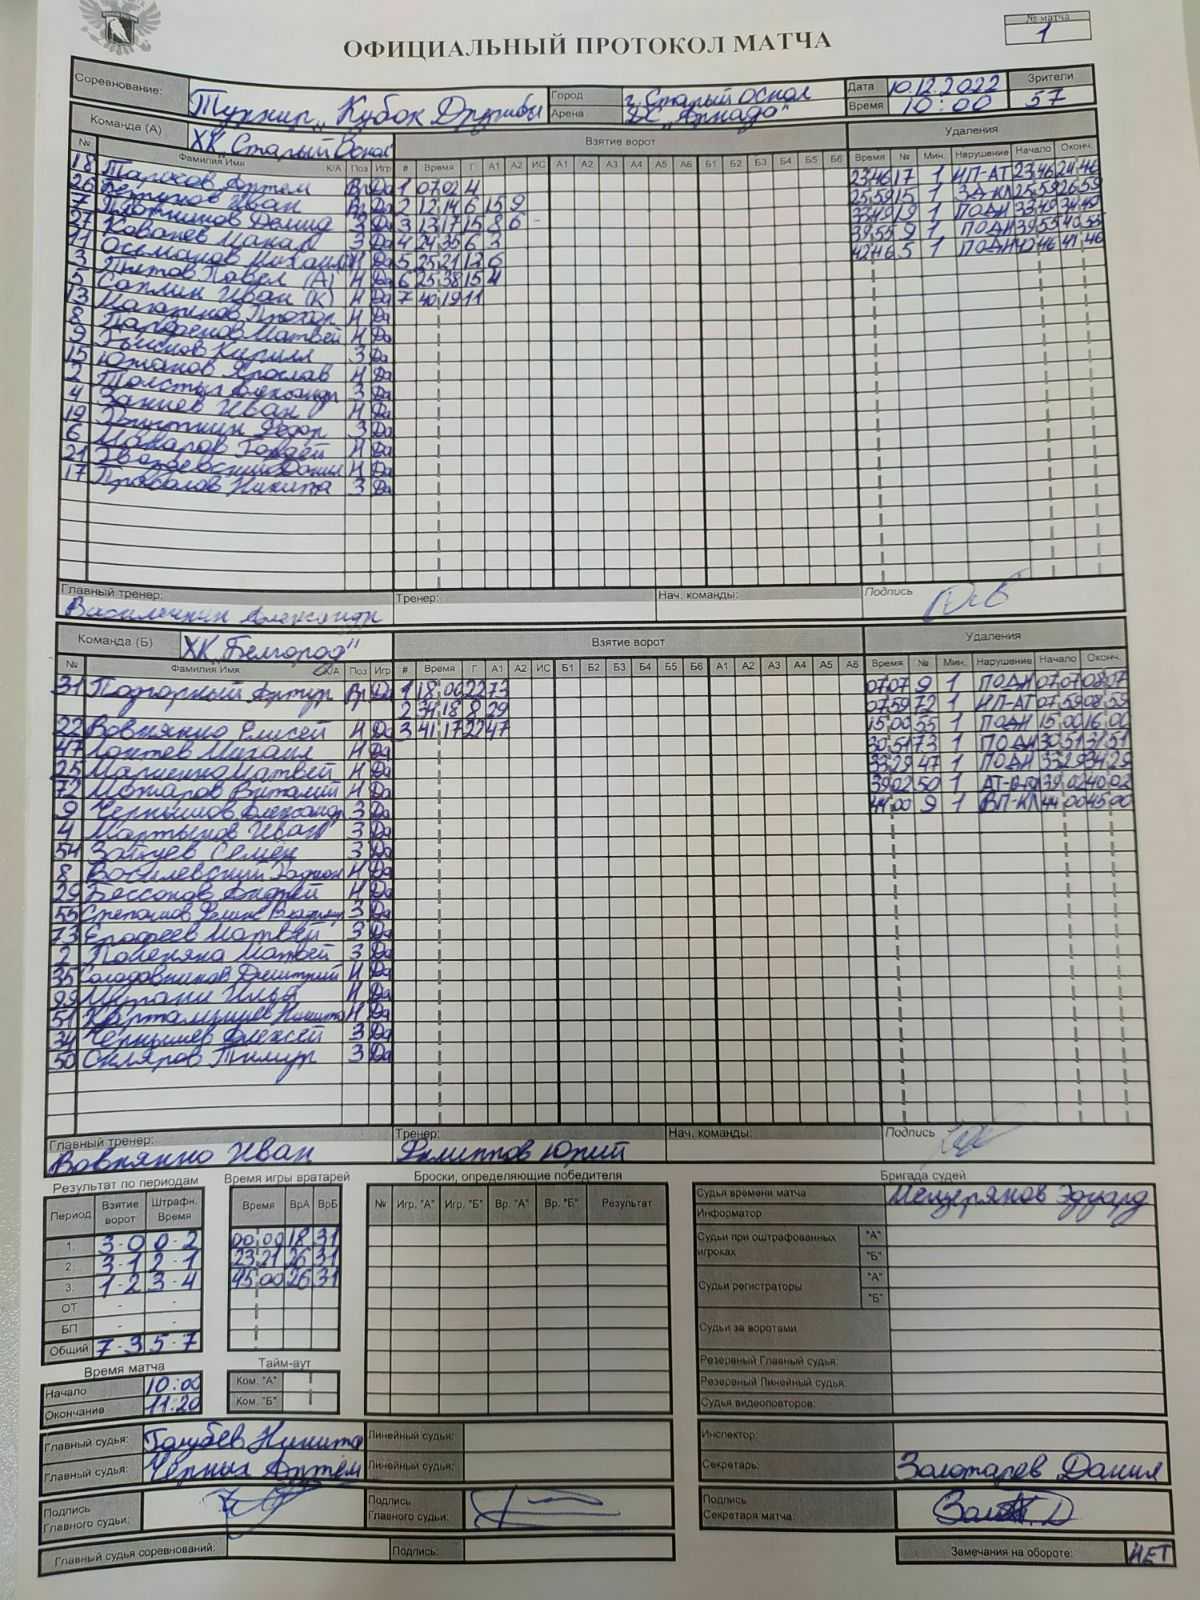 № матча
1
ОФИЦИАЛЬНЫЙ ПРОТОКОЛ МАТЧА
Соревнование: Турнир „Кубок Дружбы Город г. Старый Оскол Дата 10.12.2022 Зрители
Арена ДС „Аркада" Время 10:00 57
Команда (А) ХК „Старый Оскол Взятие ворот Удаления
№ Фамилия Имя К/А Поз Игр # Время Г А1 А2 ИС А1 А2 А3 А4 А5 А6 Б1 Б2 Б3 Б4 Б5 Б6 Время № Мин. Нарушение Начало Оконч.
18 Артем Вр Да 1 07 02 4 23 46 17 1 ИП-АТ 23 46 24 46
26 Иван Вр Да 2 12 14 6 15 9 25 59 15 1 ЗД-КЛ 25 59 26 59
7 Плотников Демид З Да 3 13 17 15 8 6 - 33 49 19 1 ПОДН 33 49 34 49
27 Ковалев Макар З Да 4 24 35 6 3 39 55 9 1 ПОДН 39 55 40 55
11 Н Да 5 25 21 13 6 42 46 5 1 ПОДН 41 46
3 Павел (А) Н Да 6 25 38 15 4
5 Саплин Иван (К) Н Да 7 40 19 11
13 Прохор Н Да
8 Парфенов Матвей Н Да
9 Кирилл З Да
15 Южанов Ярослав Н Да
2 Толстых Александр З Да
4 Заниев Иван Н Да
19 Федор З Да
6 Макаров Гордей Н Да
21 Данил Н Да
17 Провалов Никита З Да
Главный тренер: Тренер: Нач. команды: Подпись
Василечкин Александр
Команда (Б) ХК „Белгород" Взятие ворот Удаления
№ Фамилия Имя К/А Поз Игр # Время Г А1 А2 ИС Б1 Б2 Б3 Б4 Б5 Б6 А1 А2 А3 А4 А5 А6 Время № Мин. Нарушение Начало Оконч.
31 Подгорный Артур Вр Да 1 18 06 22 73 07 07 9 1 ПОДН 07 07 08 07
2 34 18 8 29 07 59 72 1 ИП-АТ 07 59 08 59
22 Вовнянко Елисей Н Да 3 41 17 22 47 15 00 55 1 ПОДН 15 00 16 00
47 Локтев Михаил Н Да 30 51 73 1 ПОДН 30 51 31 51
25 Мариенко Матвей Н Да 33 29 47 1 ПОДН 33 29 34 29
72 Макаров Виталий Н Да 39 02 50 1 39 02 40 02
9 Чернышов Александр З Да 44 00 9 1 ВП-КЛ 44 00 45 00
4 Мартынов Иван З Да
54 Зайцев Семен З Да
8 Василевский Н Да
29 Бессонов Андрей Н Да
55 З Да
73 Ерофеев Матвей З Да
2 Матвей З Да
35 Солодовников Дмитрий Н Да
99 Илья Н Да
51 Картамышев Никита Н Да
34 Чернышев Алексей З Да
50 Скляров Тимур З Да
Главный тренер: Тренер: Нач. команды: Подпись
Вовнянко Иван Филиппов Юрий
Результат по периодам Время игры вратарей Броски, определяющие победителя Бригада судей
Период Взятие ворот Штрафн. Время Время ВрА ВрБ № Игр. "А" Игр. "Б" Вр. "А" Вр. "Б" Результат
Судья времени матча Мещеряков Эдуард
Информатор
1. 3-0 0-2 00:00 18 31
2. 3-1 2-1 23:21 26 31
3. 1-2 3-4 45:00 26 31
ОТ - -
БП - -
Общий 7-3 5-7
Судьи при оштрафованных игроках "А" "Б"
Судьи регистраторы "А" "Б"
Судьи за воротами
Резервный Главный судья:
Резервный Линейный судья:
Судья видеоповторов:
Время матча Тайм-аут
Начало 10:00 Ком. "А"
Окончание 11:20 Ком. "Б"
Главный судья: Голубев Никита Линейный судья: Инспектор:
Главный судья: Черных Артём Линейный судья: Секретарь: Золотарев Данил
Подпись Главного судьи: Подпись Главного судьи: Подпись Секретаря матча:
Главный судья соревнований: Подпись: Замечания на обороте: НЕТ